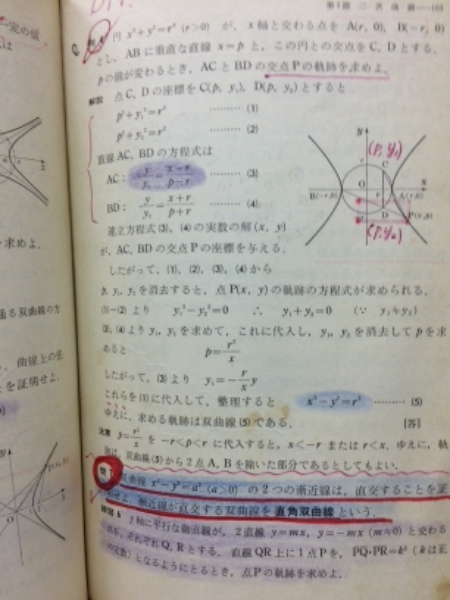 第1節 二次曲線 163
円 x²+y²=r² (r>0) が, x軸と交わる点を A(r, 0), B(−r, 0)
とし, ABに垂直な直線 x=p と, この円との交点をC, Dとする.
pの値が変わるとき, ACとBDの交点Pの軌跡を求めよ.
解説 点C, Dの座標をC(p, y₁), D(p, y₂)とすると
p²+y₁²=r² ……… (1)
p²+y₂²=r² ……… (2)
直線AC, BDの方程式は
AC: y/y₁ = (x−r)/(p−r) ……… (3)
BD: y/y₂ = (x+r)/(p+r) ……… (4)
連立方程式(3), (4)の実数の解(x, y)
が, AC, BDの交点Pの座標を与える.
したがって, (1), (2), (3), (4)から
p, y₁, y₂を消去すると, 点P(x, y)の軌跡の方程式が求められる.
(1)−(2)より y₁²−y₂²=0 ∴ y₁+y₂=0 (∵ y₁≠y₂)
(3), (4)より y₁, y₂を求めて, これに代入し, y₁, y₂を消去してpを求
めると p=r²/x
したがって, (3)より y₁=−(r/x)y
これらを(1)に代入して, 整理すると x²−y²=r² ……… (5)
ゆえに, 求める軌跡は双曲線(5)である. [答]
注意 p=r²/x を −r<p<r に代入すると, x<−r または r<x. ゆえに, 軌
跡は, 双曲線(5)から2点A, Bを除いた部分であるとしてもよい.
問 双曲線 x²−y²=a² (a>0) の2つの漸近線は, 直交することを証
明せよ. 漸近線が直交する双曲線を直角双曲線という.
y軸に平行な動直線が, 2直線 y=mx, y=−mx (m≠0) と交わる
点を, それぞれQ, Rとする. 直線QR上に1点Pを, PQ·PR=k² (kは正
の定数)となるようにとるとき, 点Pの軌跡を求めよ.
y
(p, y₁)
C
B(−r, 0)
O
A(r, 0)
x
D
P(x, y)
(p, y₂)